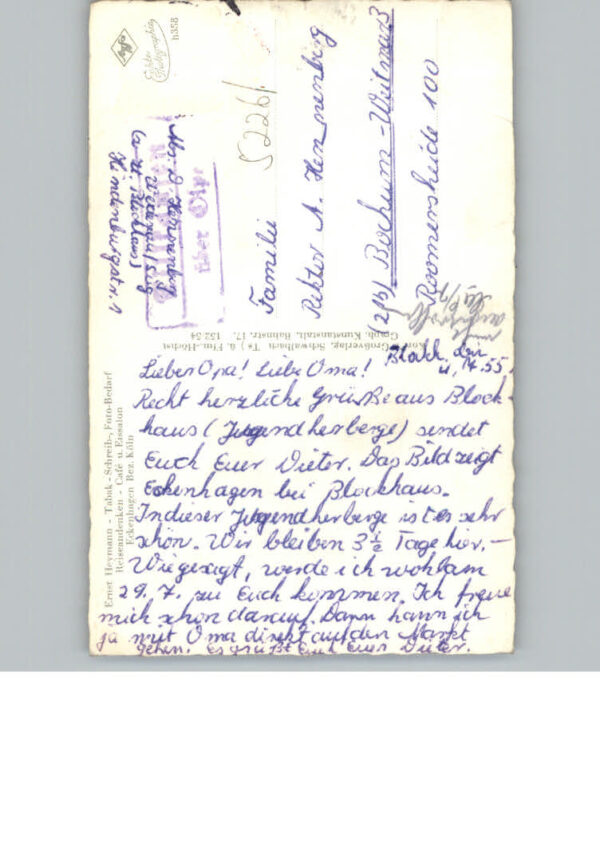 Blockh., den
4.7.55.
Lieber Opa! Liebe Oma!
Recht herzliche Grüße aus Block-
haus (Jugendherberge) sendet
Euch Euer Dieter. Das Bild zeigt
Eckenhagen bei Blockhaus.
In dieser Jugendherberge ist es sehr
schön. Wir bleiben 3 1/2 Tage hier. –
Wie gesagt, werde ich wohl am
29. 7. zu Euch kommen. Ich freue
mich schon darauf. Dann kann ich
ja mit Oma direkt auf den Markt
gehen. Es grüßt Euch Euer Dieter.
Familie
Rektor A. Hennenberg
Bochum-Weitmar
Roomersheide 100
5226/
über Olpe
Hindenburgstr. 1
Agfa
Echte Photographie
h358
Großverlag, Schwalbach Ts.) ü. Ffm.-Höchst
Graph. Kunstanstalt, Bahnstr. 17. 152/54
Ernst Heymann - Tabak - Schreib-, Foto-Bedarf
Reiseandenken - Café u. Eissalon
Eckenhagen Bez. Köln